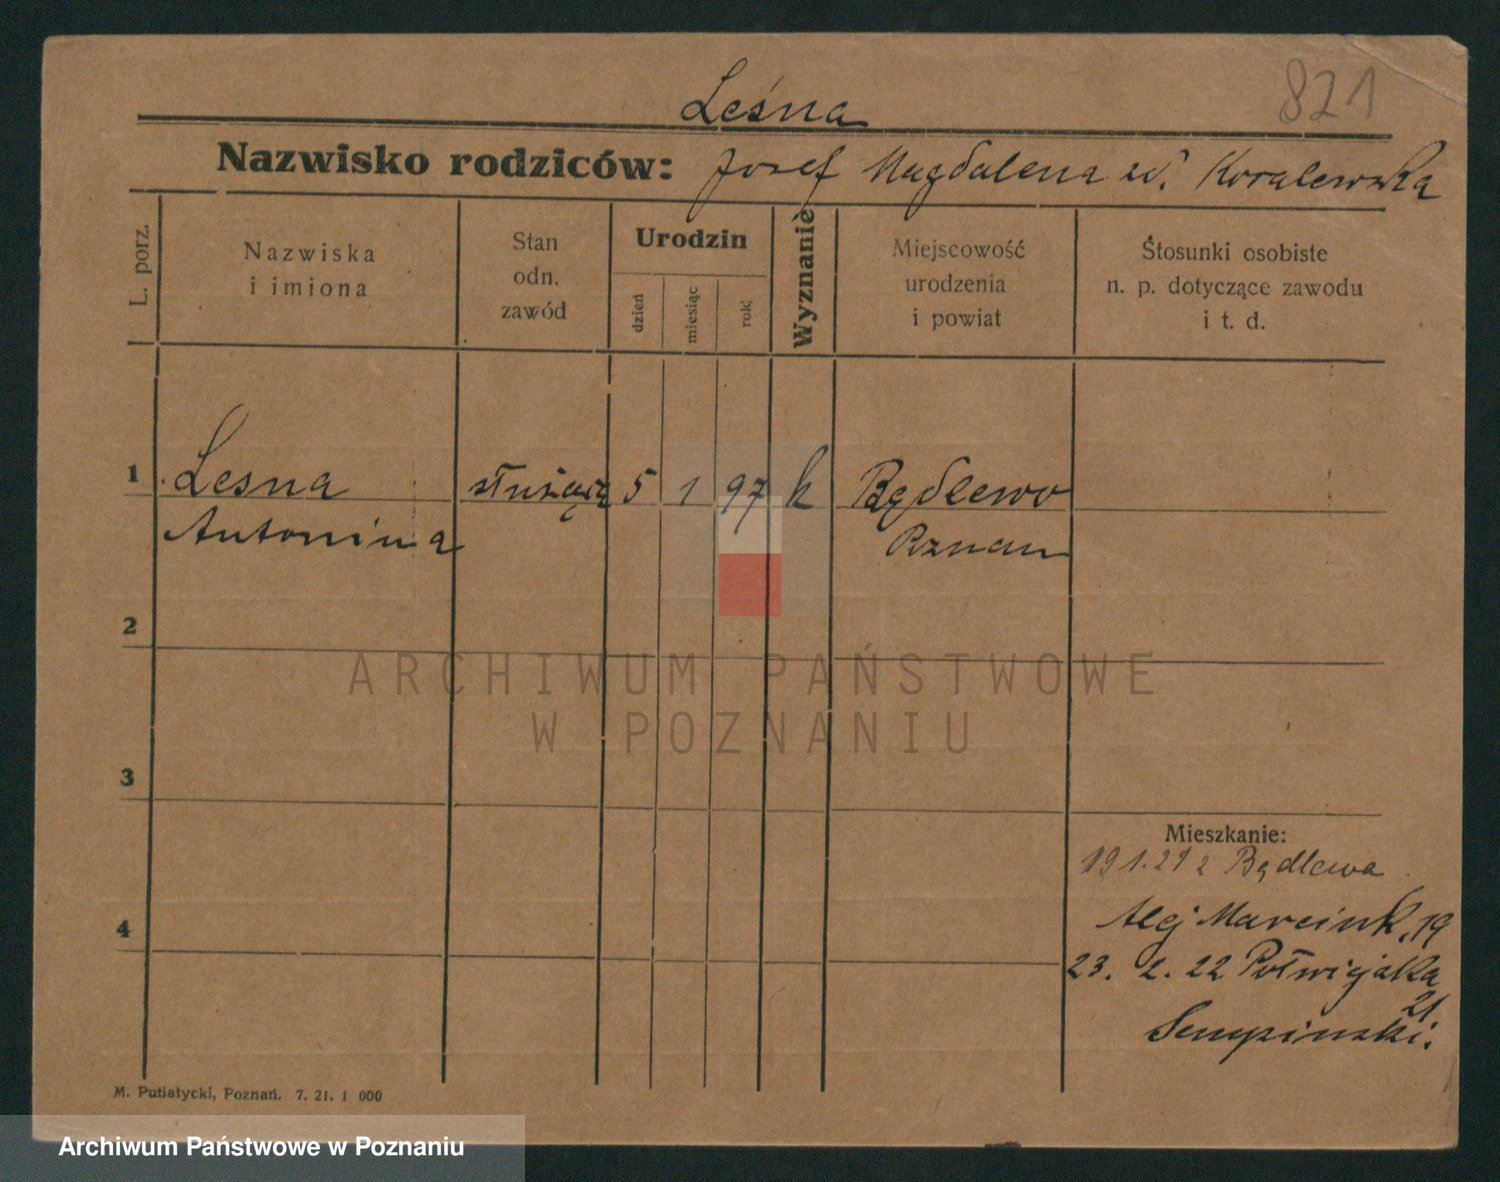 821
Leśna
Nazwisko rodziców: Josef Magdalena z d. Koralewska
L. porz.
Nazwiska
i imiona
Stan
odn.
zawód
Urodzin
dzień
miesiąc
rok
Wyznanie
Miejscowość
urodzenia
i powiat
Stosunki osobiste
n. p. dotyczące zawodu
i t. d.
1 Lesna służąca 5 1 97 k Bądlewo
Antonina Poznan
2
ARCHIWUM PAŃSTWOWE
W POZNANIU
3
Mieszkanie:
19 1. 21 z Bądlewa
4 Alej Marcink. 19
23. 2. 22 Półwiejska
21.
M. Putiatycki, Poznań. 7. 21. 1 000
Archiwum Państwowe w Poznaniu